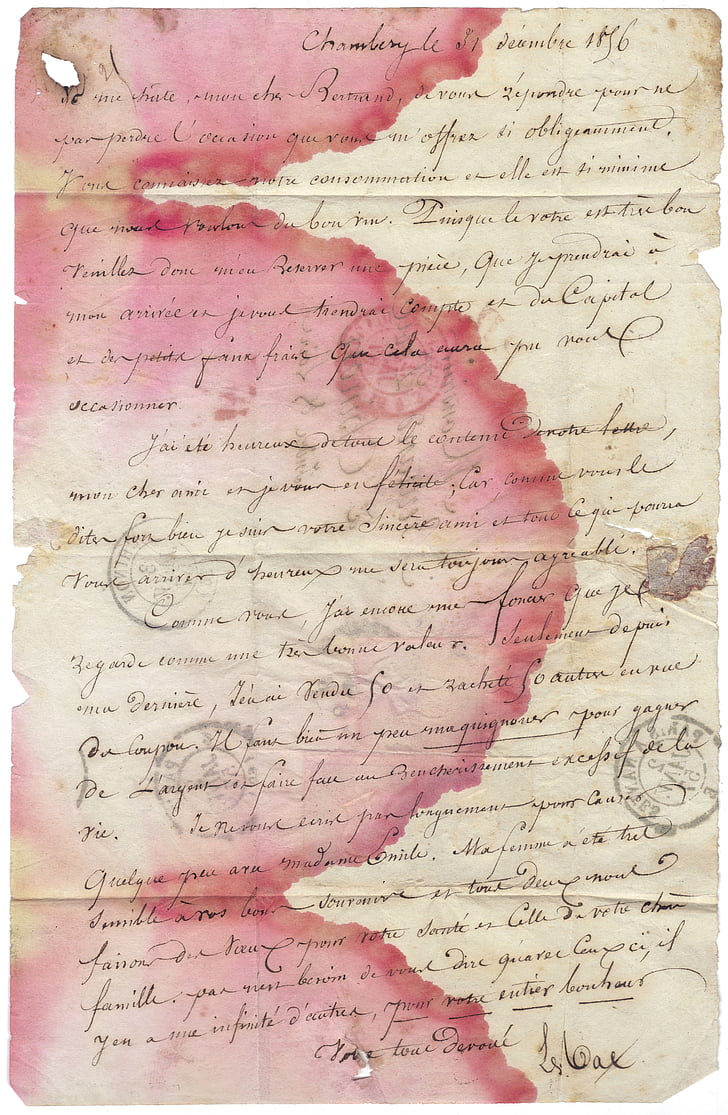 Chambery le 31 décembre 1856
Je me hâte, mon cher Bertrand, de vous répondre pour ne
pas perdre l'occasion que vous m'offrez si obligeamment.
Vous connaissez notre consommation et elle est si minime
que nous voulons du bon vin. Puisque le votre est très bon
Veuillez donc m'en Reserver une pièce, que je prendrai à
mon arrivée et je vous tiendrai compte et du Capital
et des petits faux frais que cela aura pu vous
occasionner.
J'ai été heureux de tout le contenu de votre lettre,
mon cher ami et je vous en félicite; Car, comme vous le
dites fort bien je suis votre sincère ami et tout ce qui pourra
Vous arriver d'heureux me sera toujours agréable.
Comme vous, j'ai encore mes que je
Regarde comme une très bonne valeur. Seulement depuis
ma dernière, j'en ai vendu 50 et racheté 50 autres en vue
du Coupon. Il faut bien un peu maquignoner pour gagner
de L'argent et faire face au Rencherissement excessif de la
vie. Je ne vous ecris pas longuement pour cause
Quelque peu madame Emile. Ma femme a été très
sensible à vos bons souvenirs et tous deux nous
faisons des vœux pour votre santé et Celle de votre chère
famille. pas n'est besoin de vous dire qu'avec Ceux ci, il
y en a une infinité d'autres, pour votre entier bonheur
Votre tout devoué